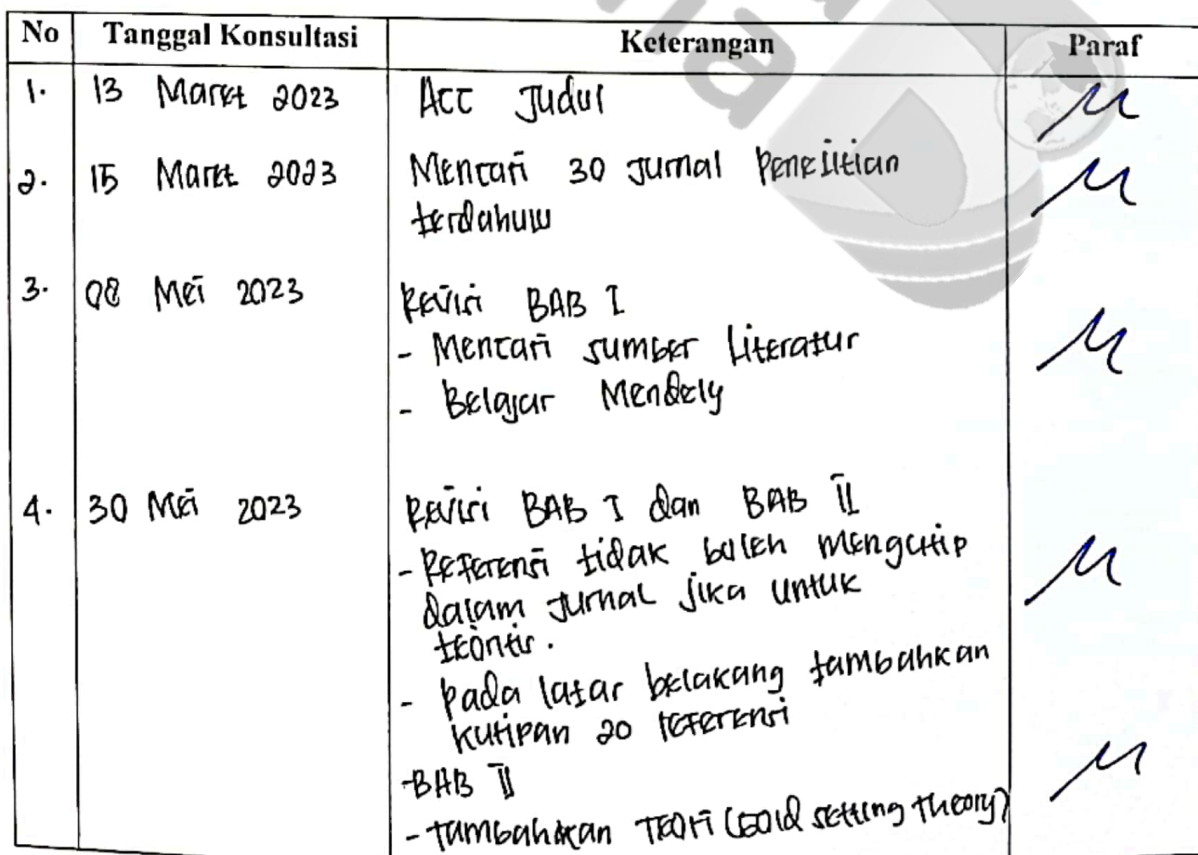 No Tanggal Konsultasi Keterangan Paraf
1. 13 Maret 2023 Acc Judul
2. 15 Maret 2023 Mencari 30 Jurnal Penelitian
terdahulu
3. 08 Mei 2023 Revisi BAB I
- Mencari sumber Literatur
- Belajar Mendely
4. 30 Mei 2023 Revisi BAB I dan BAB II
- Referensi tidak boleh mengutip
dalam Jurnal jika untuk
teoritis.
- Pada latar belakang tambahkan
kutipan 20 referensi
- BAB II
- Tambahkan TEORI (Gold setting theory)